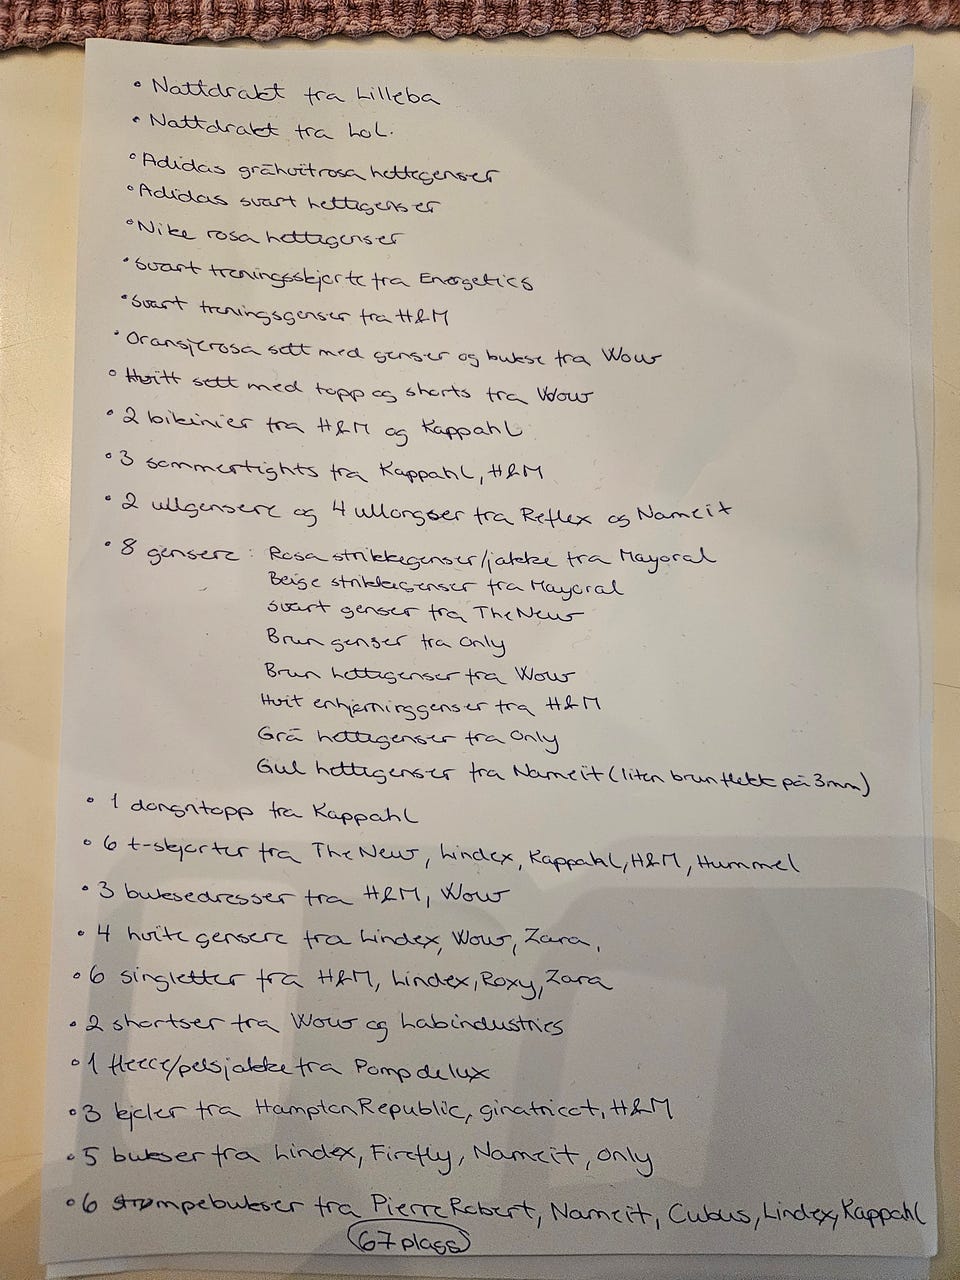 • Nattdrakt fra Lilleba
• Nattdrakt fra LOL.
• Adidas gråhvitrosa hettegenser
• Adidas svart hettegenser
• Nike rosa hettegenser
• Svart treningsskjorte fra Energetics
• Svart treningsgenser fra H&M
• Oransjerosa sett med genser og bukse fra Wow
• Hvitt sett med topp og shorts fra Wow
• 2 bikinier fra H&M og Kappahl
• 3 sommertights fra Kappahl, H&M
• 2 ullgensere og 4 ullongser fra Reflex og Nameit
• 8 gensere: Rosa strikkegenser/jakke fra Mayoral
Beige strikkegenser fra Mayoral
Svart genser fra The New
Brun genser fra Only
Brun hettegenser fra Wow
Hvit enhjørninggenser fra H&M
Grå hettegenser fra Only
Gul hettegenser fra Nameit (liten brun flekk på 3mm)
• 1 dongritopp fra Kappahl
• 6 t-skjorter fra The New, Lindex, Kappahl, H&M, Hummel
• 3 buksedresser fra H&M, Wow
• 4 hvite gensere fra Lindex, Wow, Zara,
• 6 singletter fra H&M, Lindex, Roxy, Zara
• 2 shortser fra Wow og Labindustries
• 1 fleece/pelsjakke fra Pompdelux
• 3 kjoler fra Hampton Republic, ginatricot, H&M
• 5 bukser fra Lindex, Firefly, Nameit, Only
• 6 strømpebukser fra Pierre Robert, Nameit, Cubus, Lindex, Kappahl
67 plagg